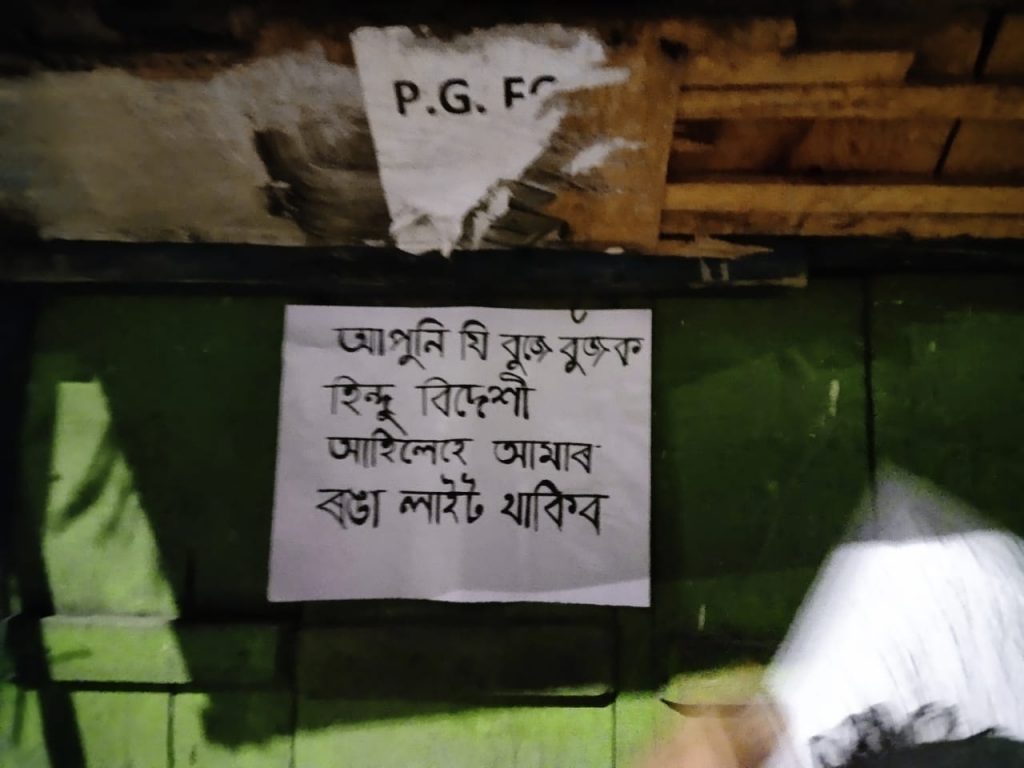 P.G. FO
আপুনি যি বুজে বুঁজক
হিন্দু বিদেশী
আহিলেহে আমাৰ
ৰঙা লাইট থাকিব